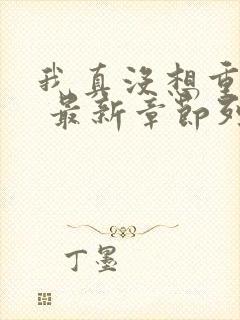 我真没想重
最新章节列
丁墨